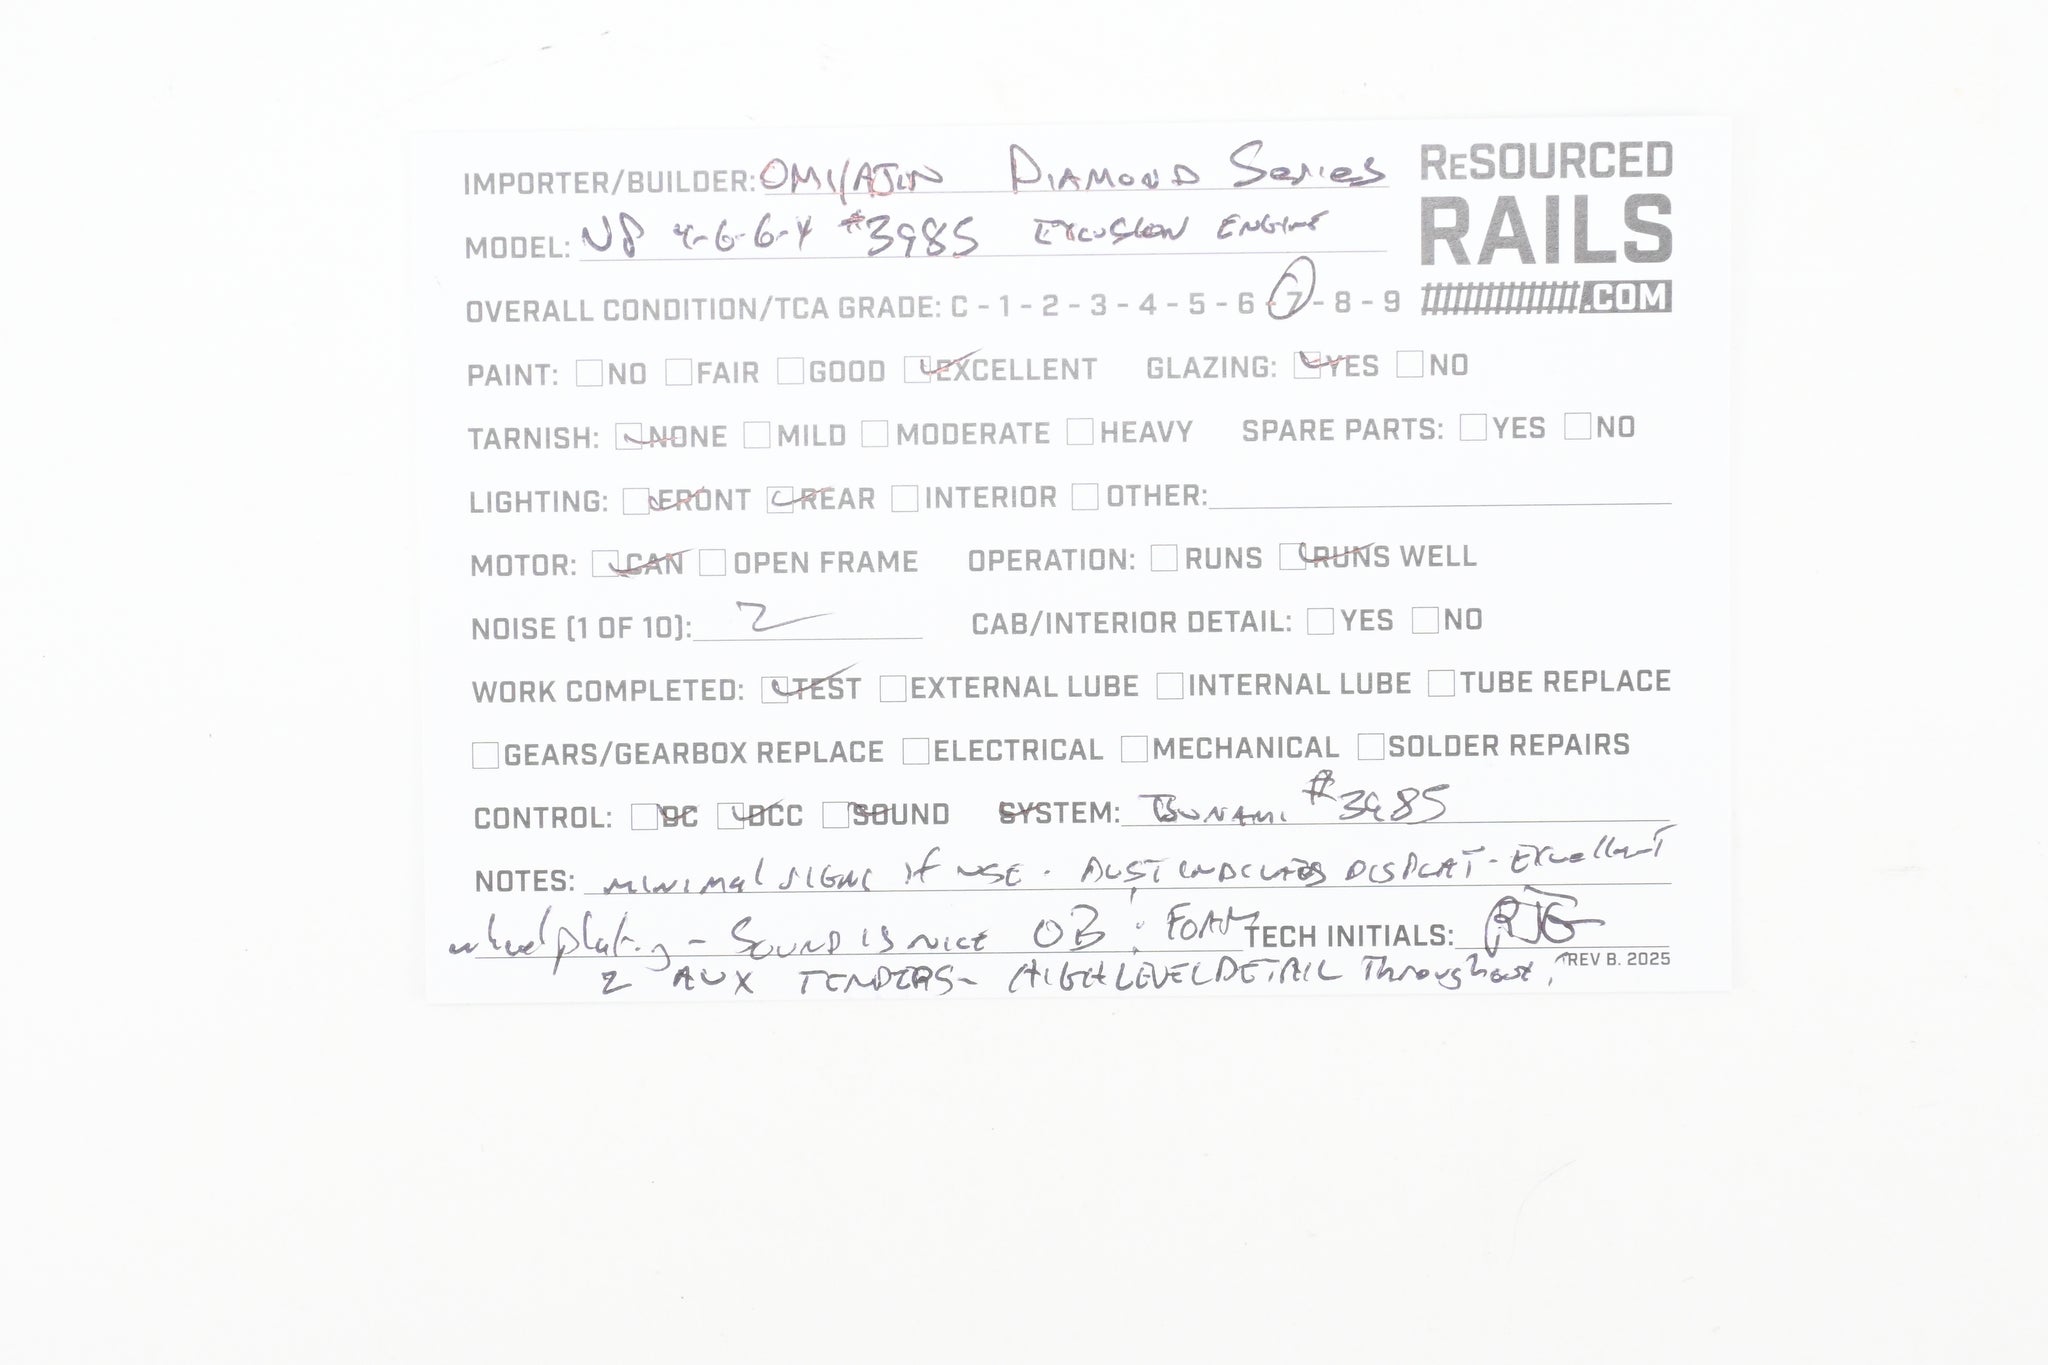 IMPORTER/BUILDER: OMI/AJIN DIAMOND SERIES
RESOURCED
RAILS
.COM
MODEL: UP 4-6-6-4 #3985 EXCUSION ENGINE
OVERALL CONDITION/TCA GRADE: C - 1 - 2 - 3 - 4 - 5 - 6 - 7 - 8 - 9
PAINT: NO FAIR GOOD EXCELLENT GLAZING: YES NO
TARNISH: NONE MILD MODERATE HEAVY SPARE PARTS: YES NO
LIGHTING: FRONT REAR INTERIOR OTHER:
MOTOR: CAN OPEN FRAME OPERATION: RUNS RUNS WELL
NOISE (1 OF 10): 2 CAB/INTERIOR DETAIL: YES NO
WORK COMPLETED: TEST EXTERNAL LUBE INTERNAL LUBE TUBE REPLACE
GEARS/GEARBOX REPLACE ELECTRICAL MECHANICAL SOLDER REPAIRS
CONTROL: DC DCC SOUND SYSTEM: TSUNAMI #3985
NOTES: MINIMAL SIGNS OF USE. DUST INDICATES DISPLAY - Excellent
wheel plating - SOUND IS NICE OB: FOAM TECH INITIALS: RJG
REV B. 2025
2 AUX TENDERS - HIGH LEVEL DETAIL Throughout.